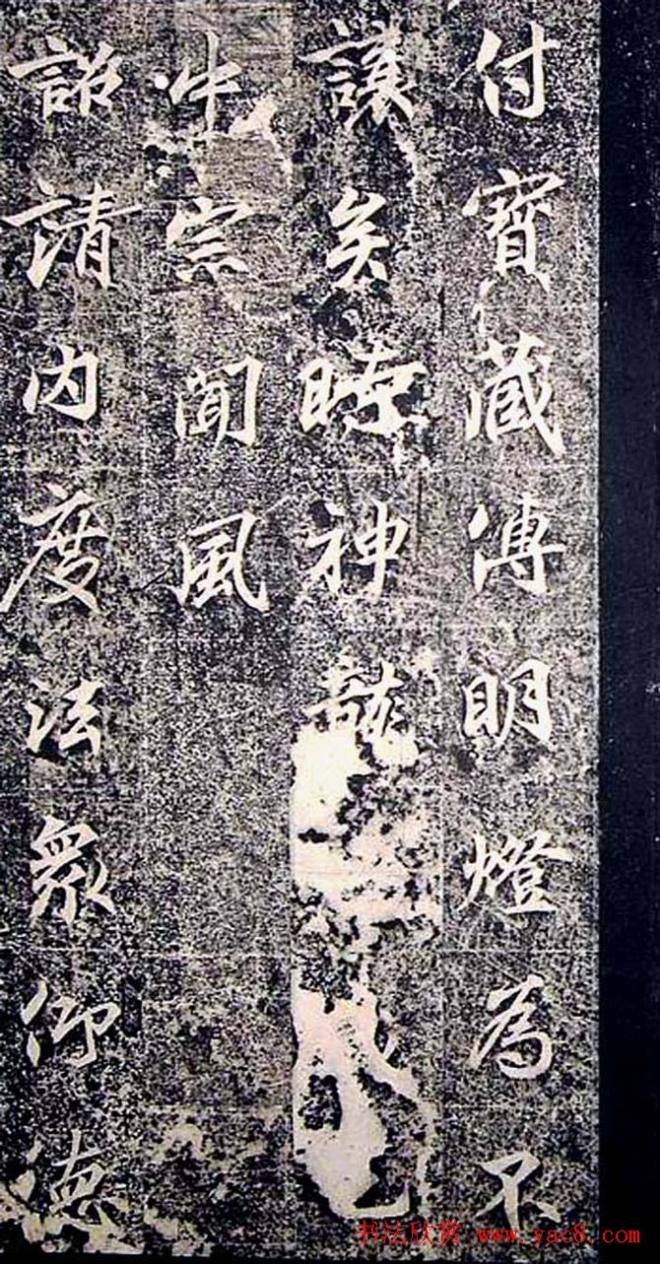 付寶藏傳明燈為不
讓矣時神龍
中宗聞風
詔請內度法衆仰德
书法欣赏 www.yac8.com